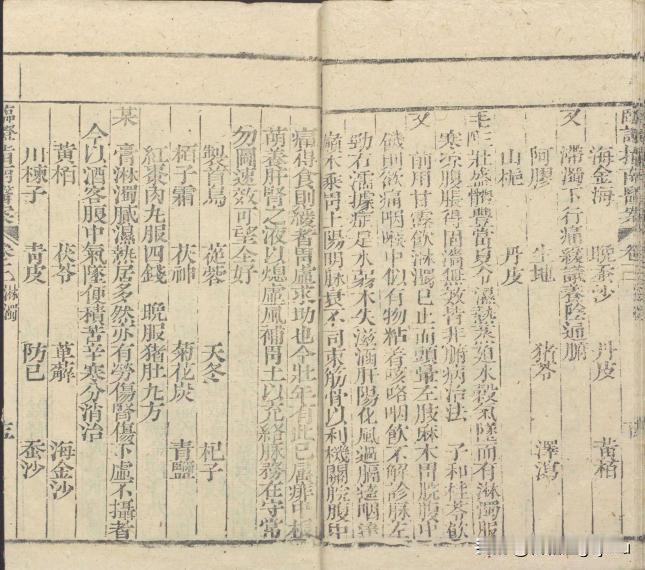 臨證指南醫案 卷三
海金沙 晚蚕沙 丹皮 黃栢
又 滯濁下行痛緩議養陰通腑
阿膠 生地 猪苓 澤瀉
山梔 丹皮
毛 壯盛體豐當夏令濕熱蒸迫水穀氣墜而有淋濁服
寒凉腹脹得固濇無效皆非腑病治法 子和桂苓飲
又 前用甘露飲淋濁已止而頭暈左肢麻木胃脘腹中
饑則欲痛咽喉中似有物粘着咳咯咽飲不解診脉左
勁右濡據症是水弱木失滋涵肝陽化風過膈遶咽達
巓木乘胃土陽明脉衰不司束筋骨以利機關脘腹中
痛得食則緩者胃虛求助也今壯年有此已屬痱中根
萌養肝腎之液以熄虛風補胃土以充絡脉務在守常
勿圖速效可望全好
製首烏 蓯蓉 天冬 杞子
栢子霜 茯神 菊花炭 青鹽
紅棗肉丸服四錢 晚服猪肚丸方
某 膏淋濁膩濕熱居多然亦有勞傷腎傷下虛不攝者
今以酒客脹中氣墜便積苦辛寒分消治
黃栢 茯苓 萆薢 海金沙
川楝子 青皮 防已 蚕沙
臨證指南醫案 卷三 淋濁